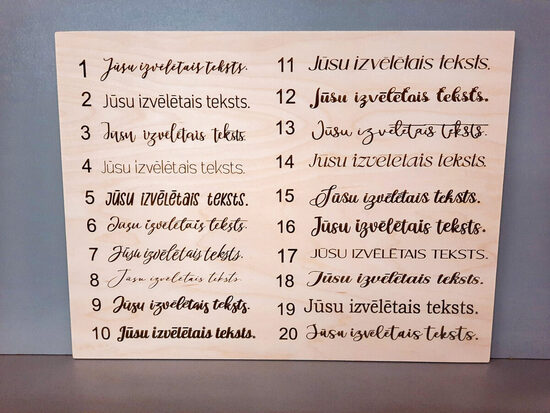 1 Jūsu izvēlētais teksts.
2 Jūsu izvēlētais teksts.
3 Jūsu izvēlētais teksts.
4 Jūsu izvēlētais teksts.
5 Jūsu izvēlētais teksts.
6 Jūsu izvēlētais teksts.
7 Jūsu izvēlētais teksts.
8 Jūsu izvēlētais teksts.
9 Jūsu izvēlētais teksts.
10 Jūsu izvēlētais teksts.
11 Jūsu izvēlētais teksts.
12 Jūsu izvēlētais teksts.
13 Jūsu izvēlētais teksts.
14 Jūsu izvēlētais teksts.
15 Jūsu izvēlētais teksts.
16 Jūsu izvēlētais teksts.
17 JŪSU IZVĒLĒTAIS TEKSTS.
18 Jūsu izvēlētais teksts.
19 Jūsu izvēlētais teksts.
20 Jūsu izvēlētais teksts.